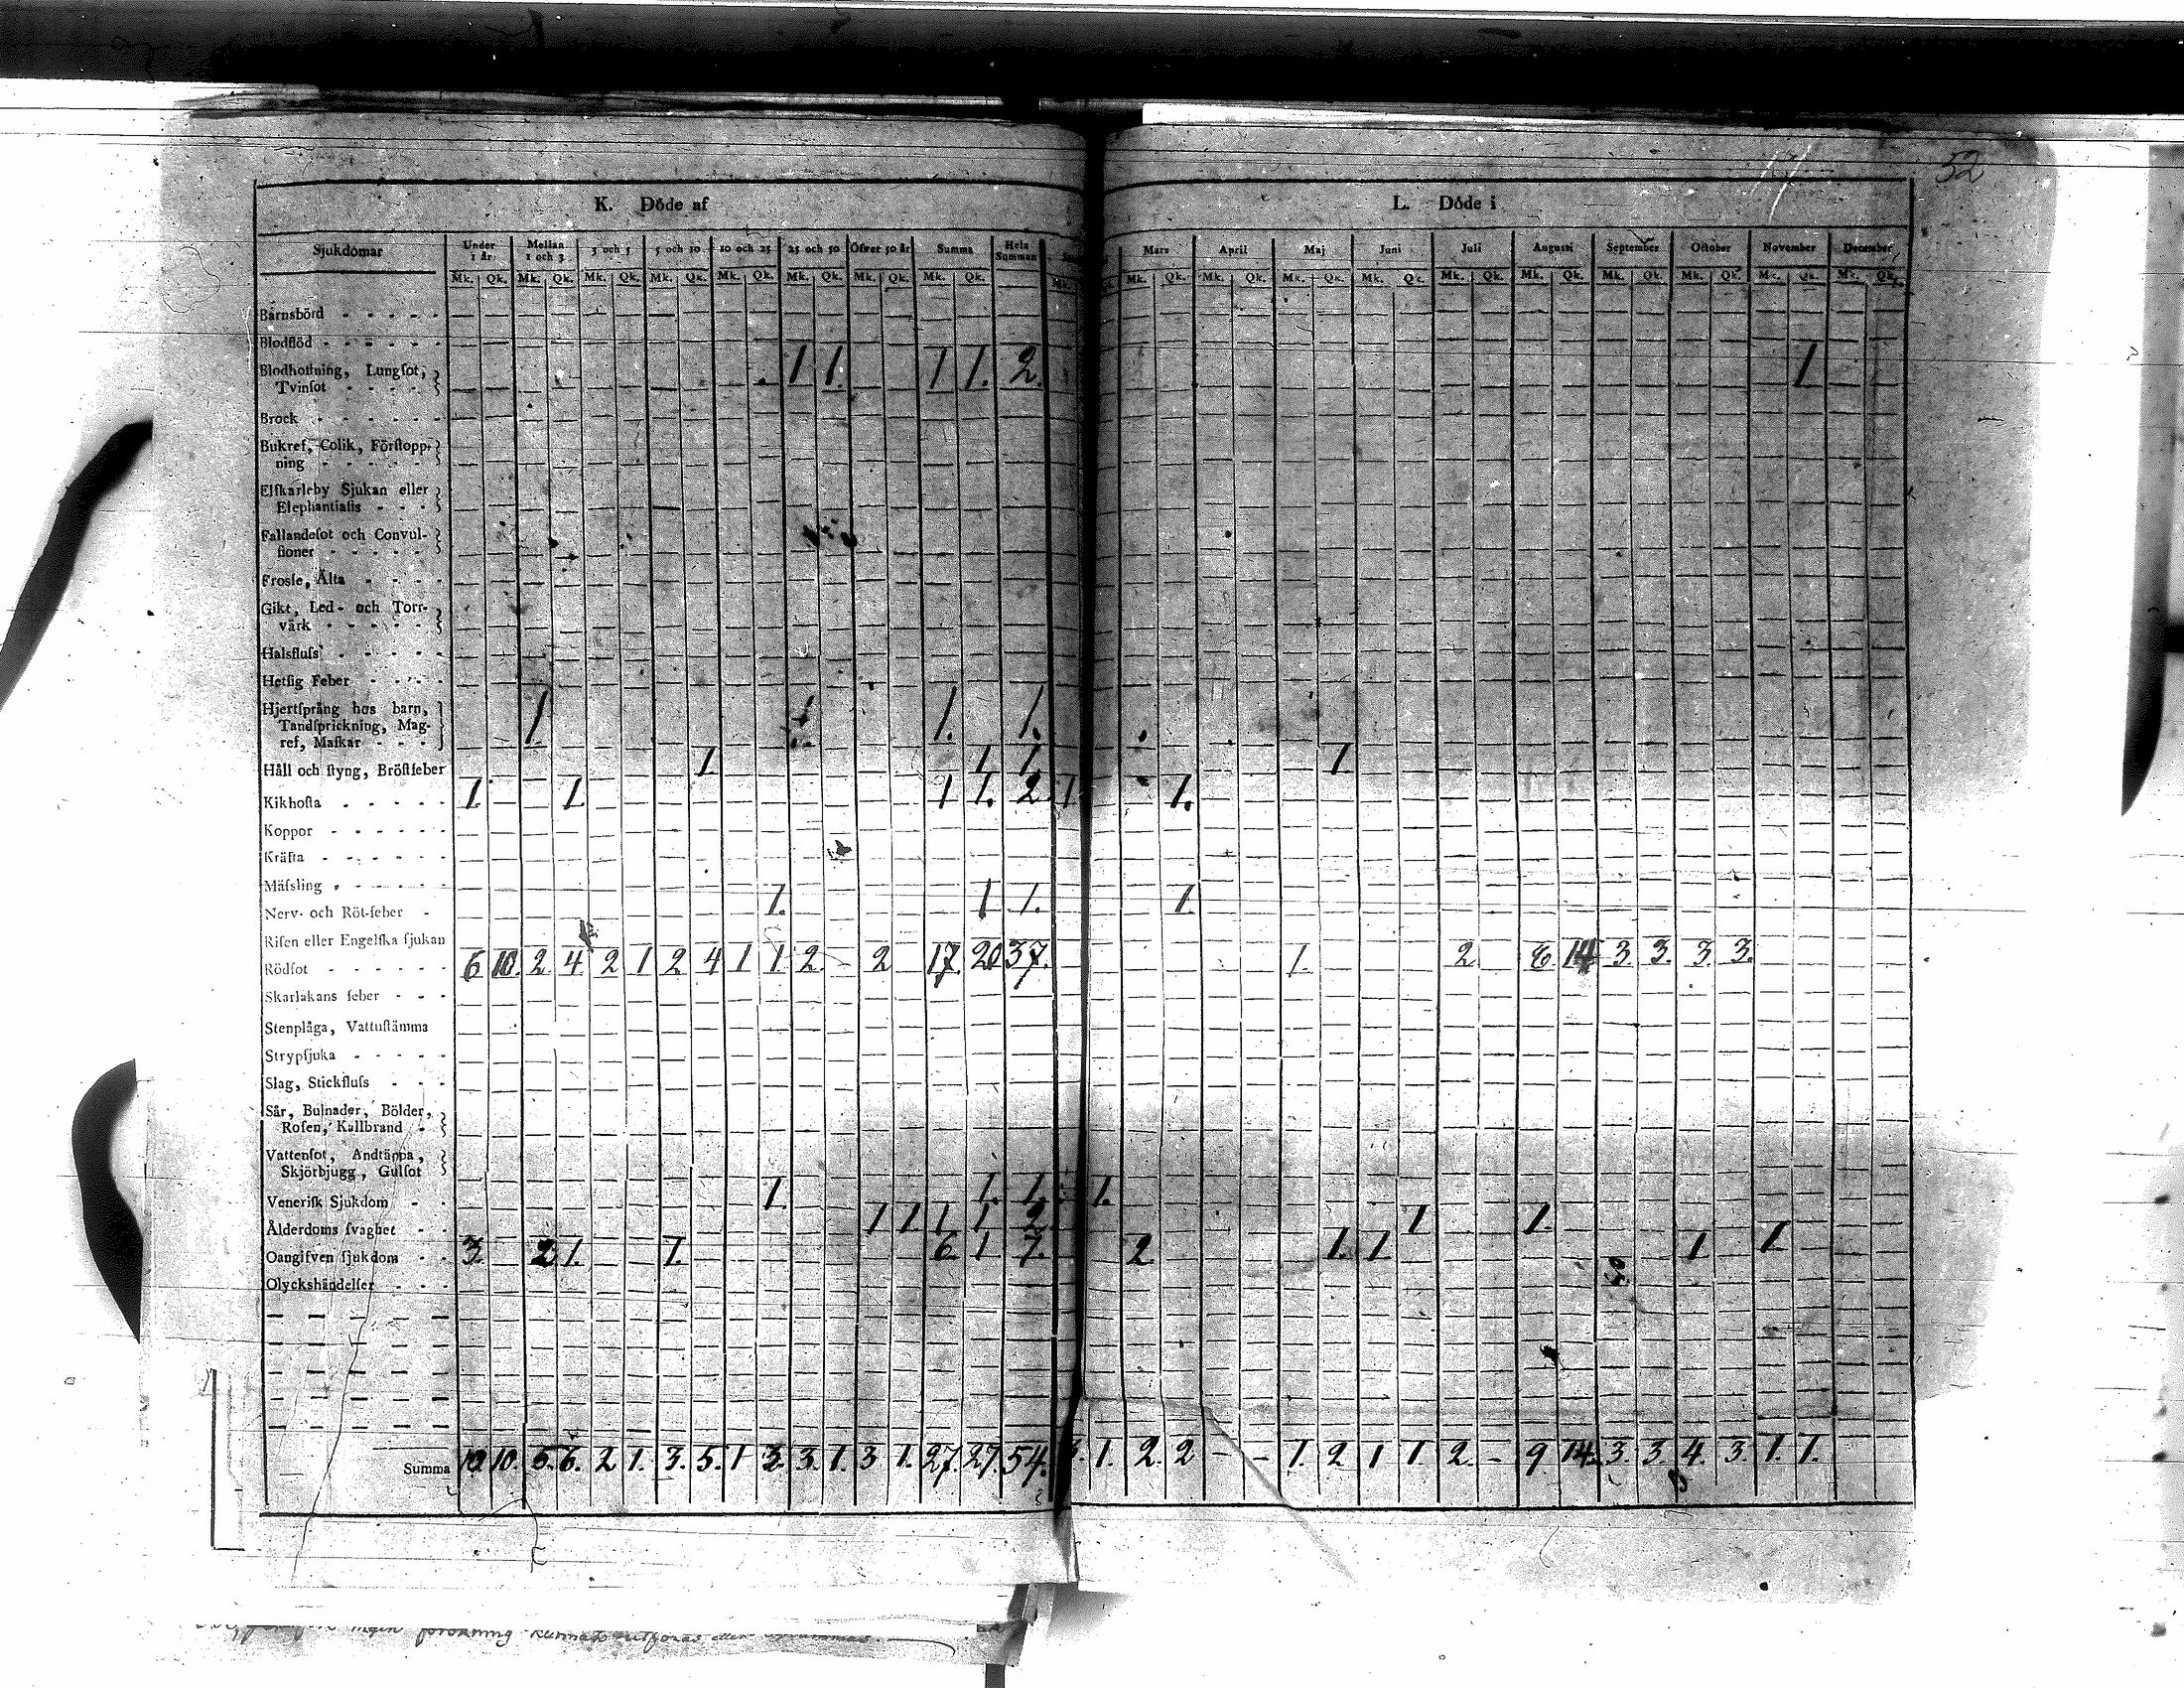 52
K. Döde af
L. Döde i
Sjukdomar Under 1 år. Mellan 1 och 3 3 och 5 5 och 10 10 och 25 25 och 50 Öfver 50 år Summa Hela Summan Mars April Maj Juni Juli Augusti September October November December
Mk. Qk. Mk. Qk. Mk. Qk. Mk. Qk. Mk. Qk. Mk. Qk. Mk. Qk. Mk. Qk. Mk. Mk. Qk. Mk. Qk. Mk. Qk. Mk. Qk. Mk. Qk. Mk. Qk. Mk. Qk. Mk. Qk. Mk. Qk. Mk. Qk.
Barnsbörd
Blodflöd
Blodhostning, Lungsot, Tvinsot 1 1. 1 1. 2. 1
Brock
Bukref, Colik, Förstoppning
Elfkarleby Sjukan eller Elephantiasis
Fallandesot och Convulsioner
Frosse, Älta
Gikt, Led- och Torrvärk
Halsfluss
Hetsig Feber
Hjertsprång hos barn, Tandsprickning, Magref, Maskar 1 1. 1.
Håll och styng, Bröstfeber 1. 1 1. 1.
Kikhosta 1. 1. 1 1. 2. 1 1.
Koppor
Kräfta
Mässling
Nerv- och Röt-feber 1. 1 1. 1.
Risen eller Engelska sjukan
Rödsot 6 10. 2 4 2 1 2 4 1 1. 2. 2 17. 20 37. 1. 2 6. 14 3. 3. 3. 3.
Skarlakans feber
Stenplåga, Vattustämma
Strypsjuka
Slag, Stickfluss
Sår, Bulnader, Bölder, Rosen, Kallbrand
Vattensot, Andtäppa, Skjörbjugg, Gulsot
Venerisk Sjukdom 1. 1. 1. 1.
Ålderdoms svaghet 1 1. 1 1 2. 1 1.
Oangifven sjukdom 3. 2 1. 1. 6 1 7. 2 1. 1 1 1.
Olyckshändelser
Summa 10 10. 5. 6. 2 1. 3. 5. 1 3. 3. 1. 3 1. 27. 27. 54. 1. 2. 2 - - 1. 2 1 1 2. - 9 14. 3. 3. 4. 3. 1. 1.